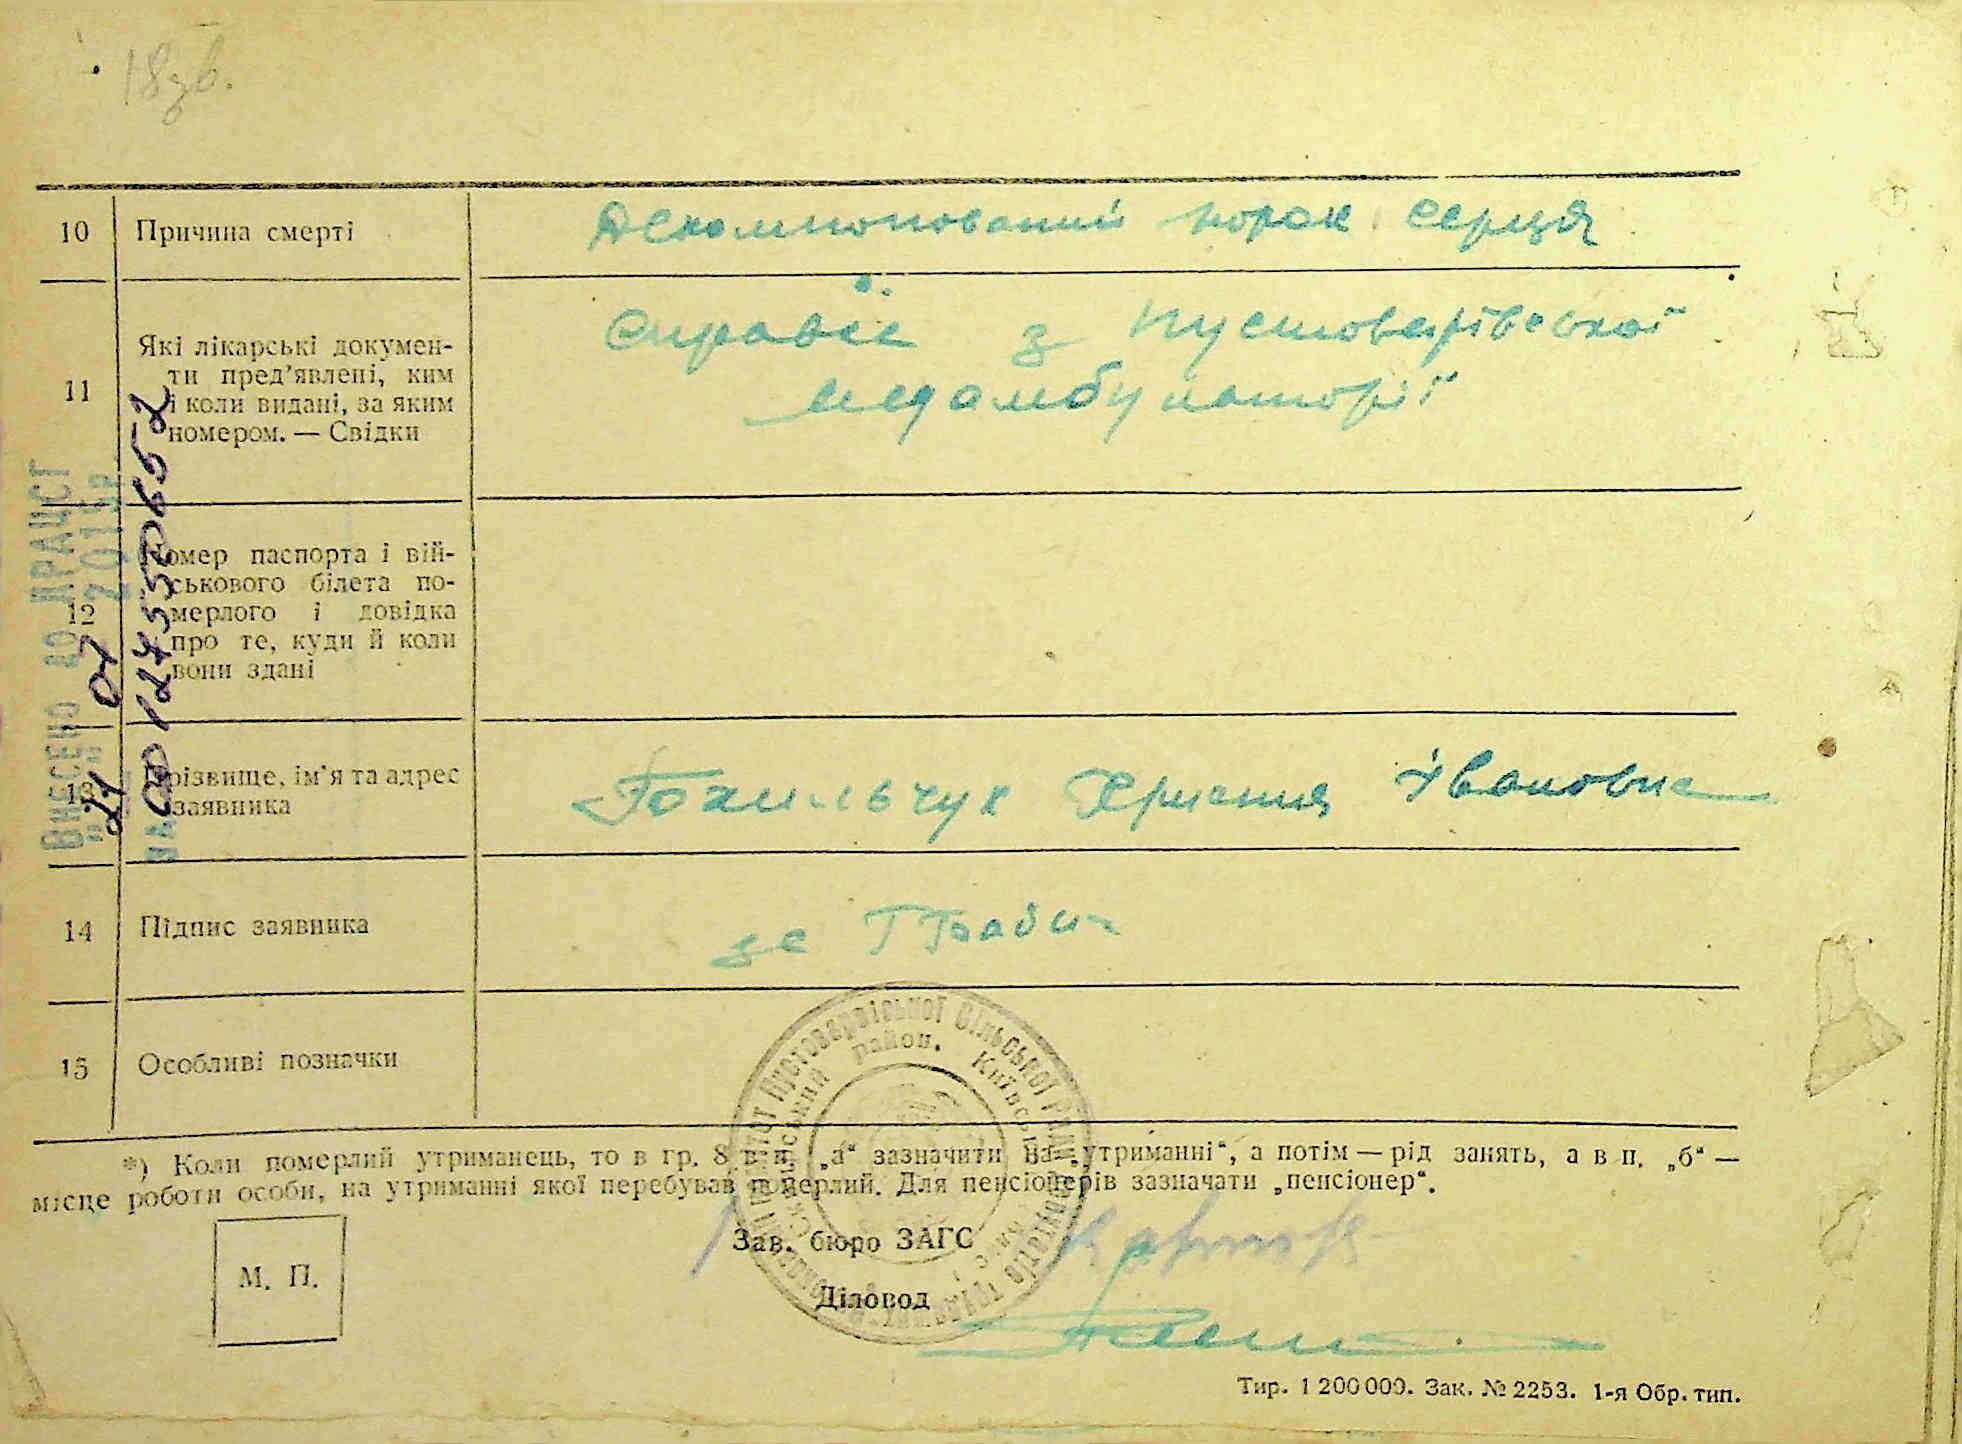 18зв.
10 Причина смерті Декомпнований порок серця
11 Які лікарські докумен-
ти пред'явлені, ким
і коли видані, за яким
номером. — Свідки
Справка з Пустоварівської
медамбулаторії
12 Номер паспорта і вій-
ськового білета по-
мерлого і довідка
про те, куди й коли
вони здані
13 Прізвище, ім'я та адрес
заявника
Івановна
14 Підпис заявника
за
15 Особливі позначки
Внесено до ДРАЦСГ
2015р.
*) Коли померлий утриманець, то в гр. 8 в п. „а“ зазначити на „утриманні“, а потім — рід занять, а в п. „б“ —
місце роботи особи, на утриманні якої перебував померлий. Для пенсіонерів зазначати „пенсіонер“.
Пустоварівської Сільської Ради
район. Київської
Зав. бюро ЗАГС
М. П.
Діловод
Тир. 1 200 000. Зак. № 2253. 1-я Обр. тип.